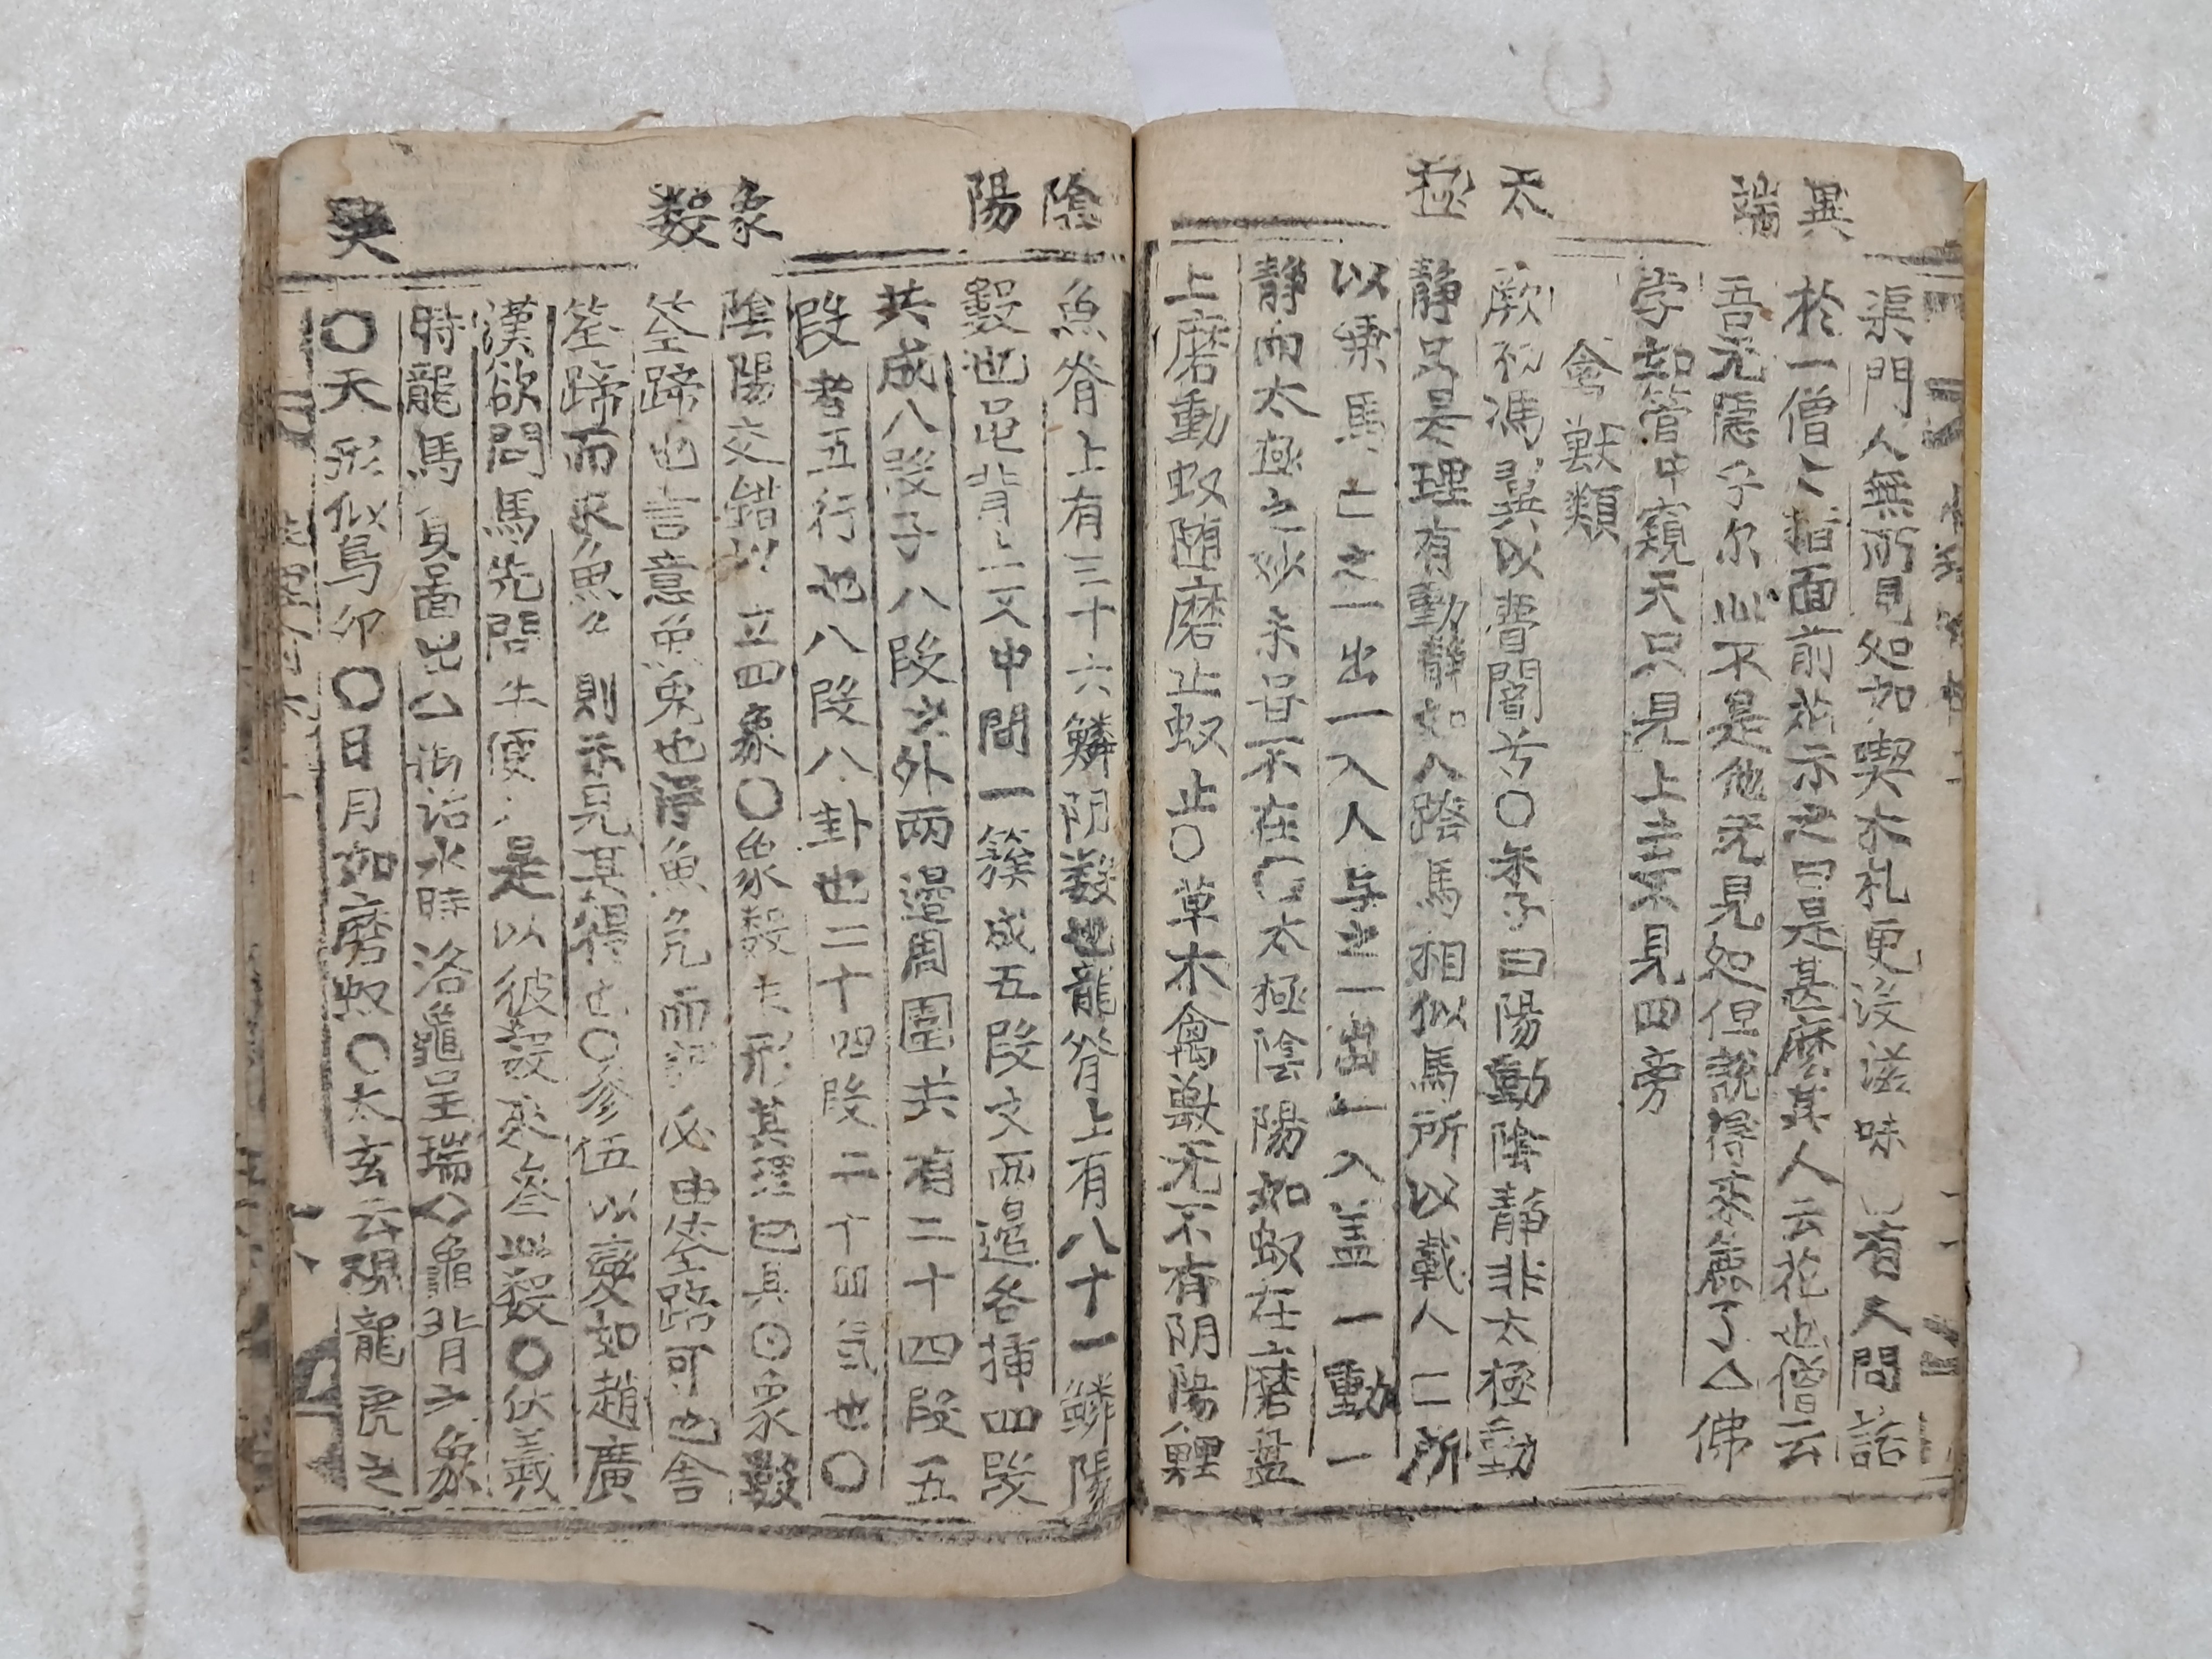 異端
太極
渠門人無所見処如喫木札更沒滋味 有人問話
於一僧〻指面前花示之曰是甚麽其人云花也僧云
吾无隱乎尓此不是他无見処但說得來麁了△佛
学如管中窺天只見上去不見四旁
禽獸類
厥初馮翼以瞢闇兮○朱子曰陽動陰静非太極動
静只是理有動静如人跨馬相似馬所以載人〻所
以乗馬〻之一出一入人与之一出一入盖一動一
静而太極之妙未甞不在○太極陰陽如蚁在磨盘
上磨動蚁随磨止蚁止○草木禽獣无不有阴陽鯉
陰陽
象數
魚脊上有三十六鱗阴数也龍脊上有八十一鱗陽
數也龟背上文中間一簇成五段文两邉各揷四段
共成八段子八段之外两邉周圍共有二十四段五
段者五行也八段八卦也二十四段二十四氣也○
陰陽交錯以立四象○象数未形其理已具○象數
筌蹄也言意魚兎也得魚兎而 必由筌蹄可也舍
筌蹄而求魚兎則未見其得也○參伍以變如趙廣
漢欲問馬先問牛便〻是以彼數來參此数○伏羲
時龍馬負啚出河治水時洛龜呈瑞○龜背之象
○天形似鳥卵○日月如磨蚁○太玄云覌龍虎之